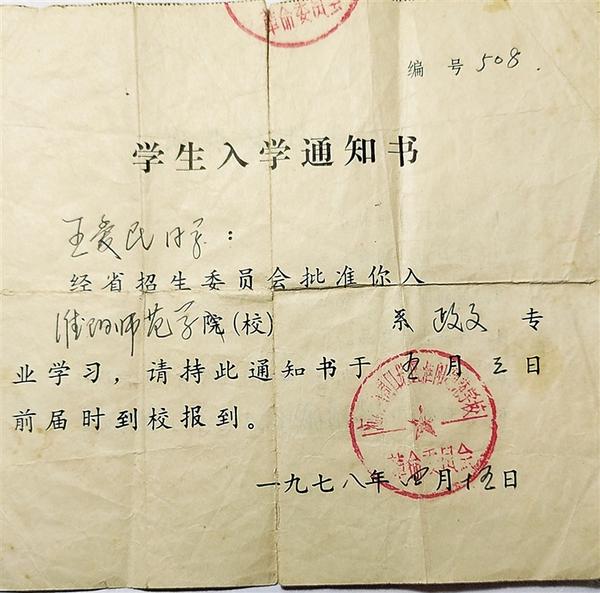 革命委员会
编号 508.
学生入学通知书
王爱民同学：
经省招生委员会批准你入
淮阴师范学院（校）　系 政文 专
业学习，请持此通知书于 五 月 三 日
前届时到校报到。
革命委员会
一九七八年 四 月 十五日